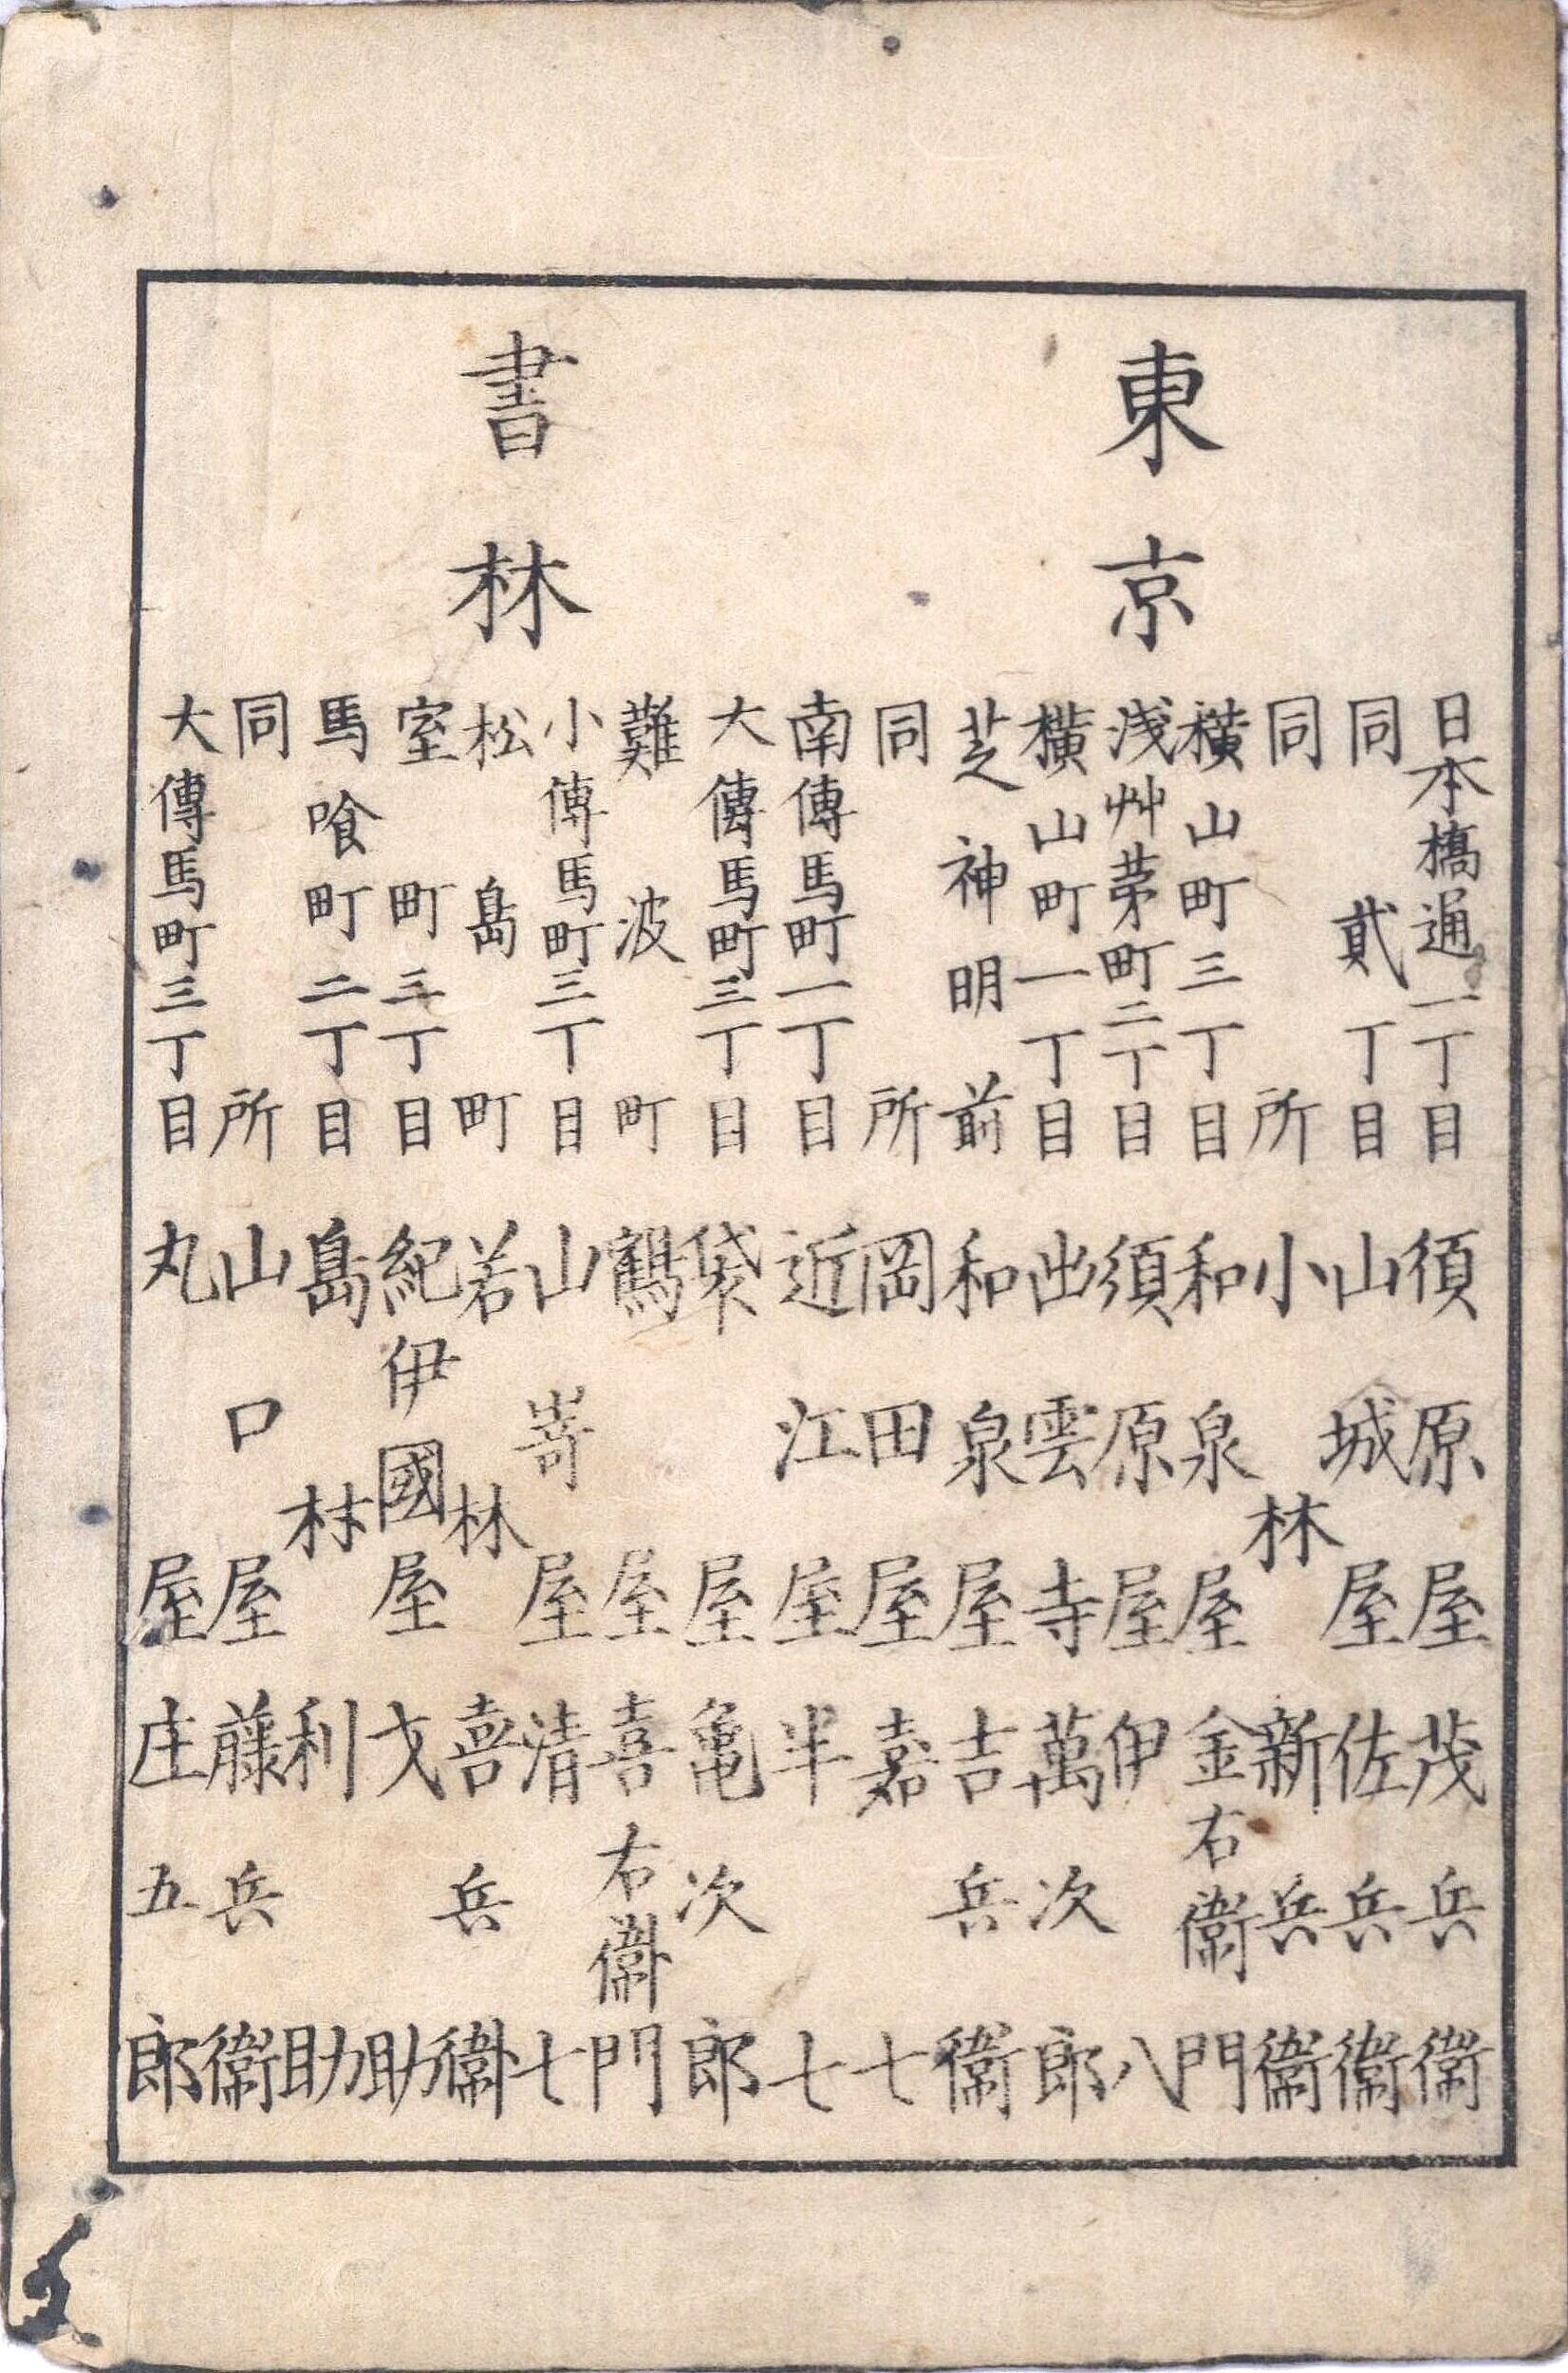 東京
書林
日本橋通一丁目 須原屋茂兵衛
同貳丁目 山城屋佐兵衛
同所 小林新兵衛
横山町三丁目 和泉屋金右衛門
浅艸茅町二丁目 須原屋伊八
横山町一丁目 出雲寺萬次郎
芝神明前 和泉屋吉兵衛
同所 岡田屋嘉七
南傳馬町一丁目 近江屋半七
大傳馬町三丁目 袋屋亀次郎
難波町 鶴屋喜右衛門
小傳馬町三丁目 山嵜屋清七
松島町 若林喜兵衛
室町三丁目 紀伊國屋弋助
馬喰町二丁目 島林利助
同所 山口屋藤兵衛
大傳馬町三丁目 丸屋庄五郎